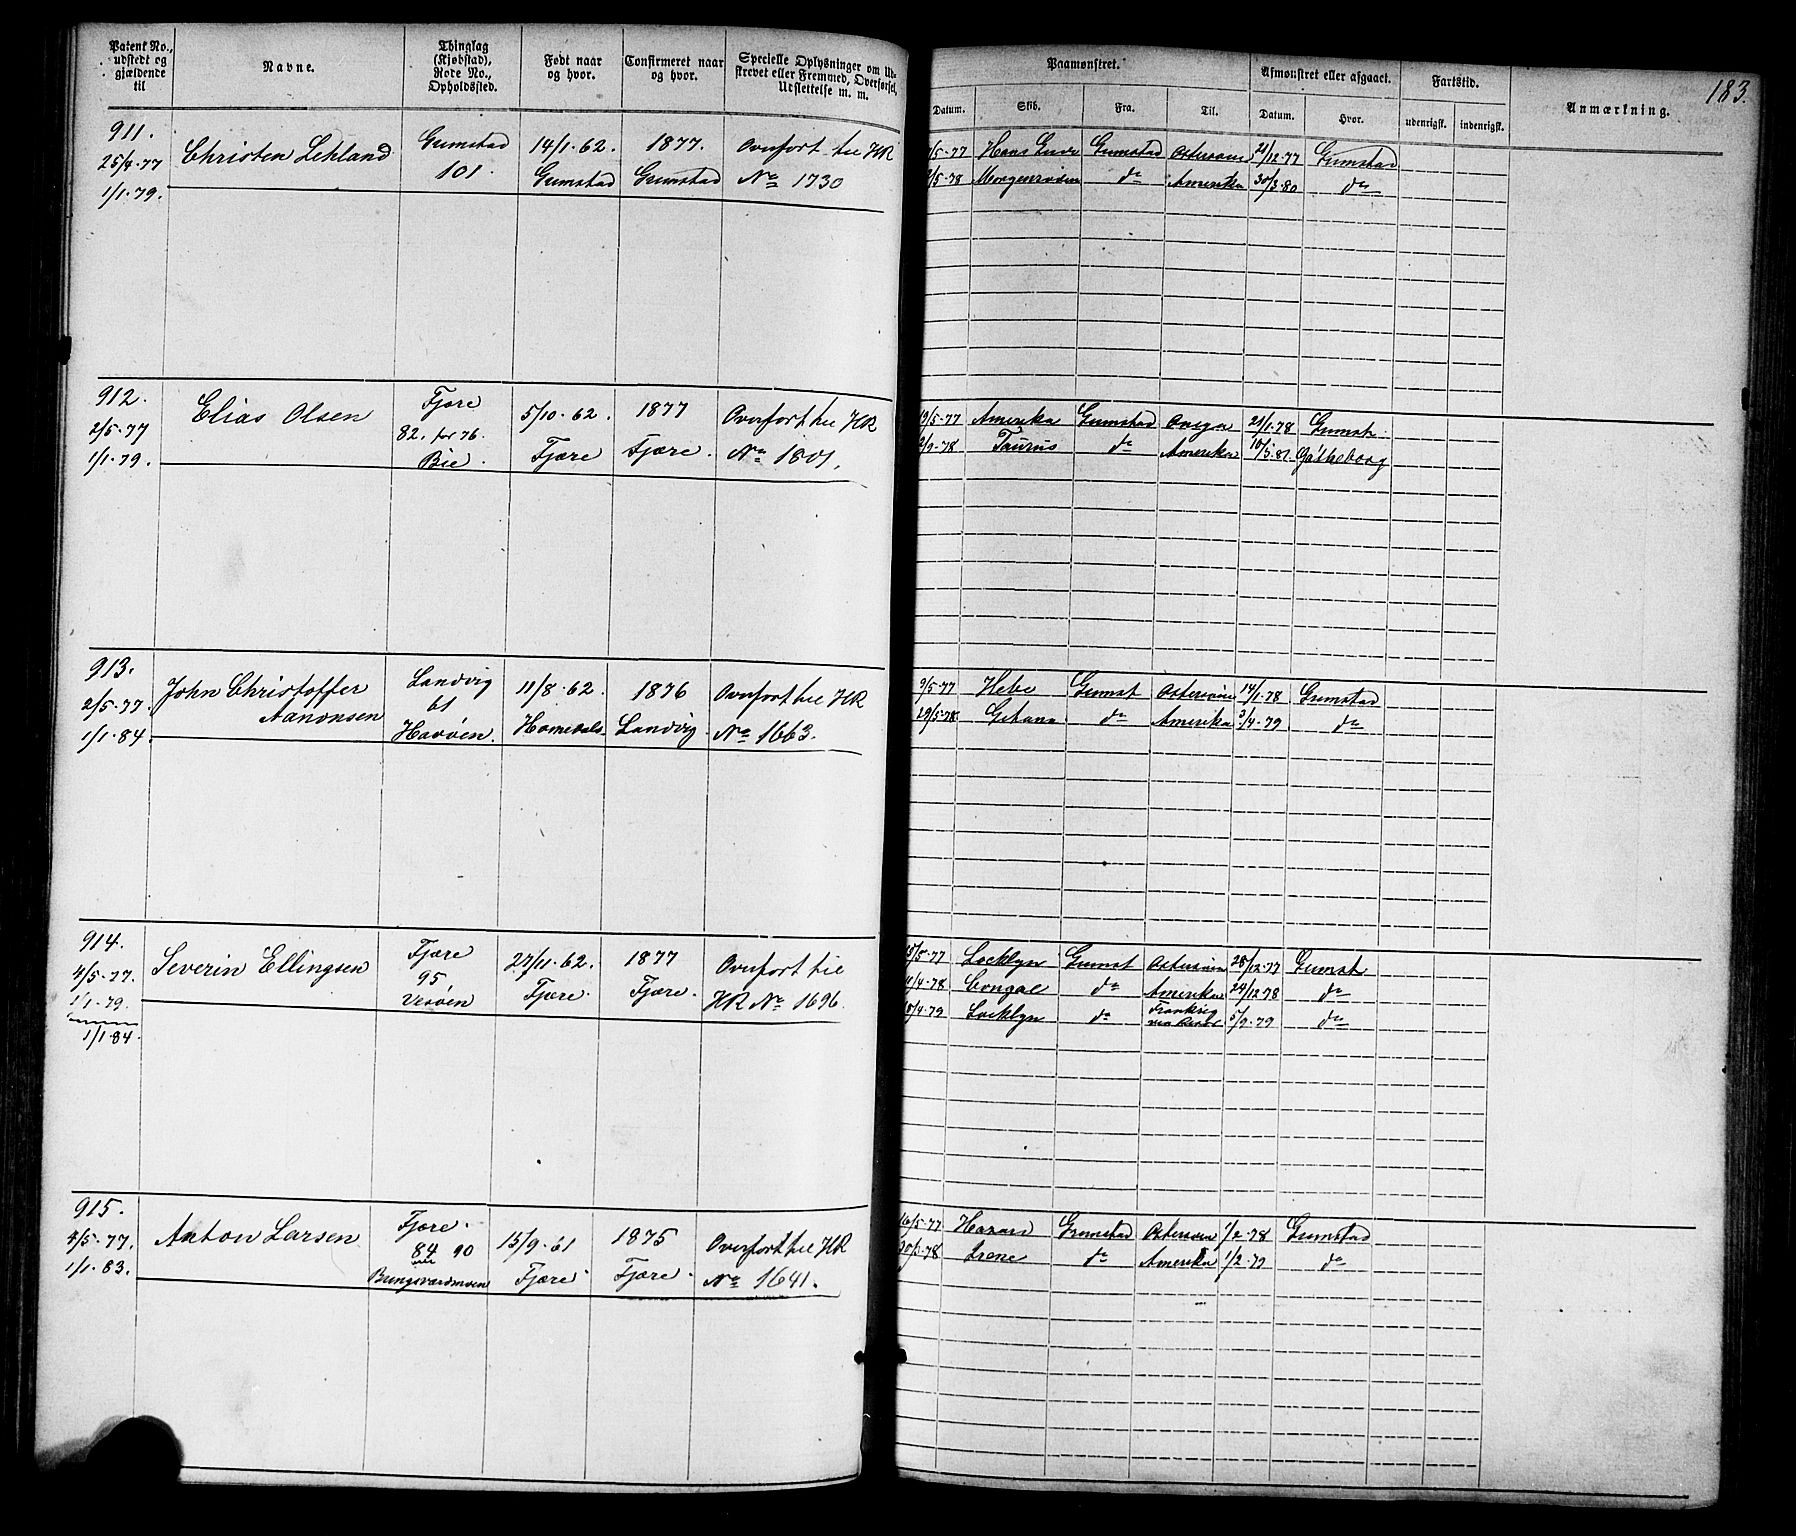 Patent No., udstedt og gjældende til
Navne.
Thinglag (Kjøbstad), Rode No., Opholdssted.
Født naar og hvor.
Confirmeret naar og hvor.
Specielle Oplysninger om Udstrevet eller Fremmed, Overførsel, Udslettelse m. m.
Paamønstret.
Afmønstret eller afgaaet.
Fartstid.
Anmærkning.
183.
Datum.
Skib.
Fra.
Til.
Datum.
Hvor.
udenrigsk.
indenrigsk.
911.
25/4-77
1/1-79.
Christen Lehland
Grimstad
101.
14/1-62.
Grimstad
1877.
Grimstad
Overført til HR
No 1730
/5-77 Hans Grimstad Østersøen 21/12-77 Grimstad
/5-78 do Amerika 30/3-80 do
912.
2/5-77
1/1-79.
Elias Olsen
Fjære
82. for 76.
Bie.
5/10-62.
Fjære
1877
Fjære.
Overført til HR
No 1801.
19/5-77 Amerika Grimstad Onega 21/1-78 Grimst.
2/9-78 Taurus do Amerika 10/5-81 Gøtheborg
913.
2/5-77.
1/1-84.
John Christoffer
Aanonsen
Landvig
61
Havøen.
11/8-62.
Homedals
1876
Landvig
Overført til HR
No 1663.
9/5-77 Hebe Grimst Østersøen 14/1-78 Grimstad
29/5-78 Gitana do Amerika 3/4-79 do
914.
4/5-77.
1/1-79.
1/1-84.
Severin Ellingsen
Fjære
95
Vesøen
27/11-62.
Fjære.
1877
Fjære.
Overført til
HR No 1696.
15/5-77 Locklyn Grimst Østersøen 28/12-77 Grimst
/4-78 Congal do Amerika 24/12-78 do
/4-79 Locklyn do 5/9-79 do
915.
5/5-77.
1/1-83.
Anton Larsen
Fjære.
84 90
Bringsværdmoen
15/9-61
Fjære.
1875
Fjære.
Overført til HR
No 1641.
16/5-77 Hazard Grimstad Østersøen 1/2-78 Grimstad
30/3-78 Irene do Amerika 1/2-79 do